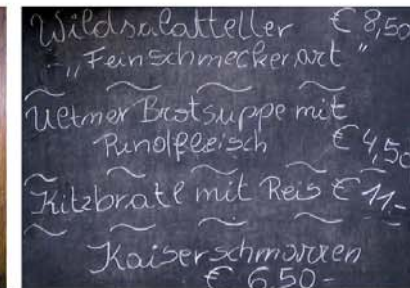 Wildsalatteller € 8,50
"Feinschmeckerart"
Ultner Brotsuppe mit
Rindfleisch € 4,50
Kitzbratl mit Reis € 11,-
Kaiserschmarren
€ 6,50-